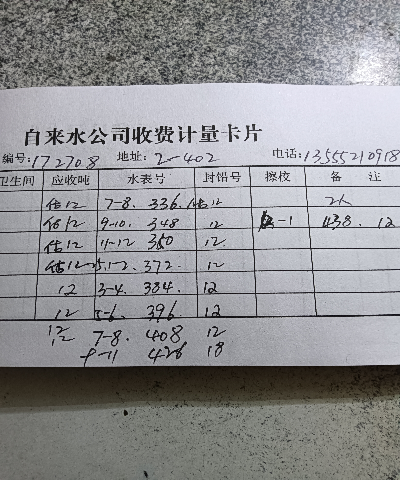 自来水公司收费计量卡片
编号:172708 地址: 2-402 电话:13555210918
卫生间 应收吨 水表号 封铅号 擦校 备 注
估12 7-8. 336. 估12 2人
估12 9-10. 348 12 -1 438. 12
估12 11-12 360 12.
估12 1-2. 372. 12
12 3-4. 384. 12
12 5-6. 396 12
12 7-8. 408 12
12 9-11 426 18